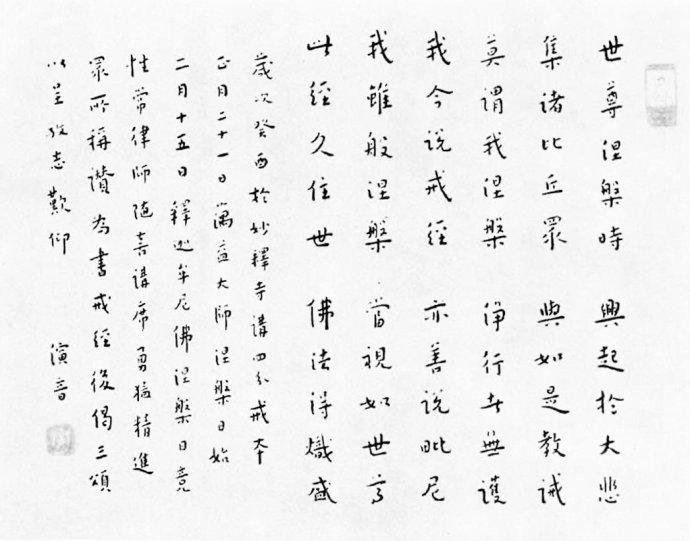 世尊涅槃時　興起於大悲
集諸比丘眾　與如是教誡
莫謂我涅槃　淨行者無護
我今說戒經　亦善說毗尼
我雖般涅槃　當視如世尊
此經久住世　佛法得熾盛
歲次癸酉於妙釋寺講四分戒本
正月二十一日蕅益大師涅槃日始
二月十五日釋迦牟尼佛涅槃日竟
性常律師隨喜講席勇猛精進
眾所稱讚為書戒經後偈三頌
以呈致志歎仰　演音